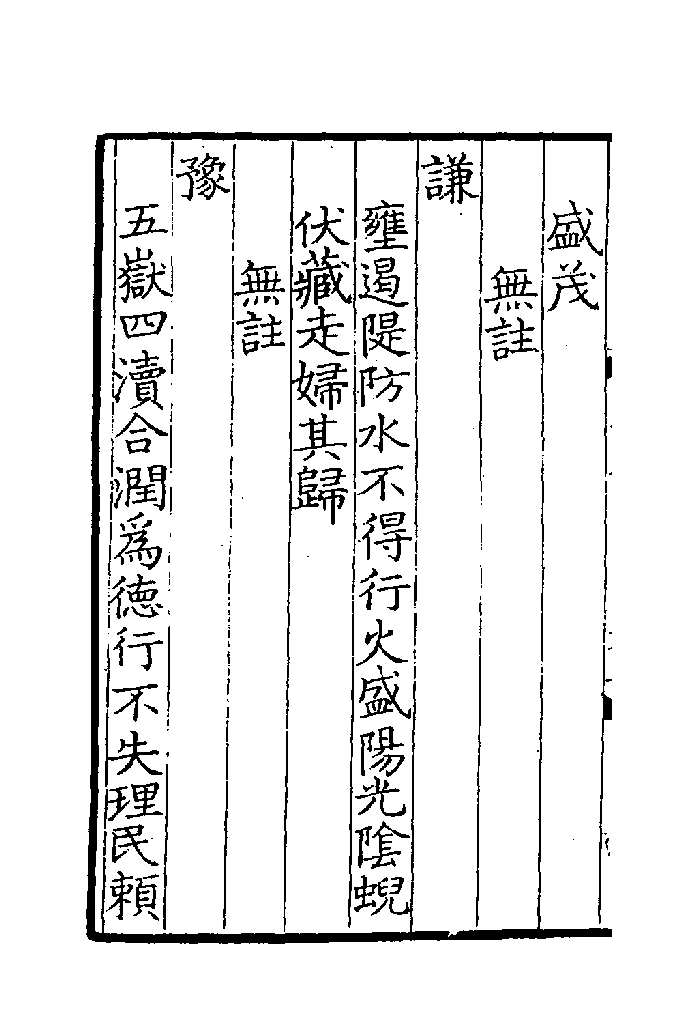 盛茂
無註
謙
壅遏隄防水不得行火盛陽光陰蜺
伏藏走婦其歸
無註
豫
五嶽四瀆合潤為徳行不失理民賴